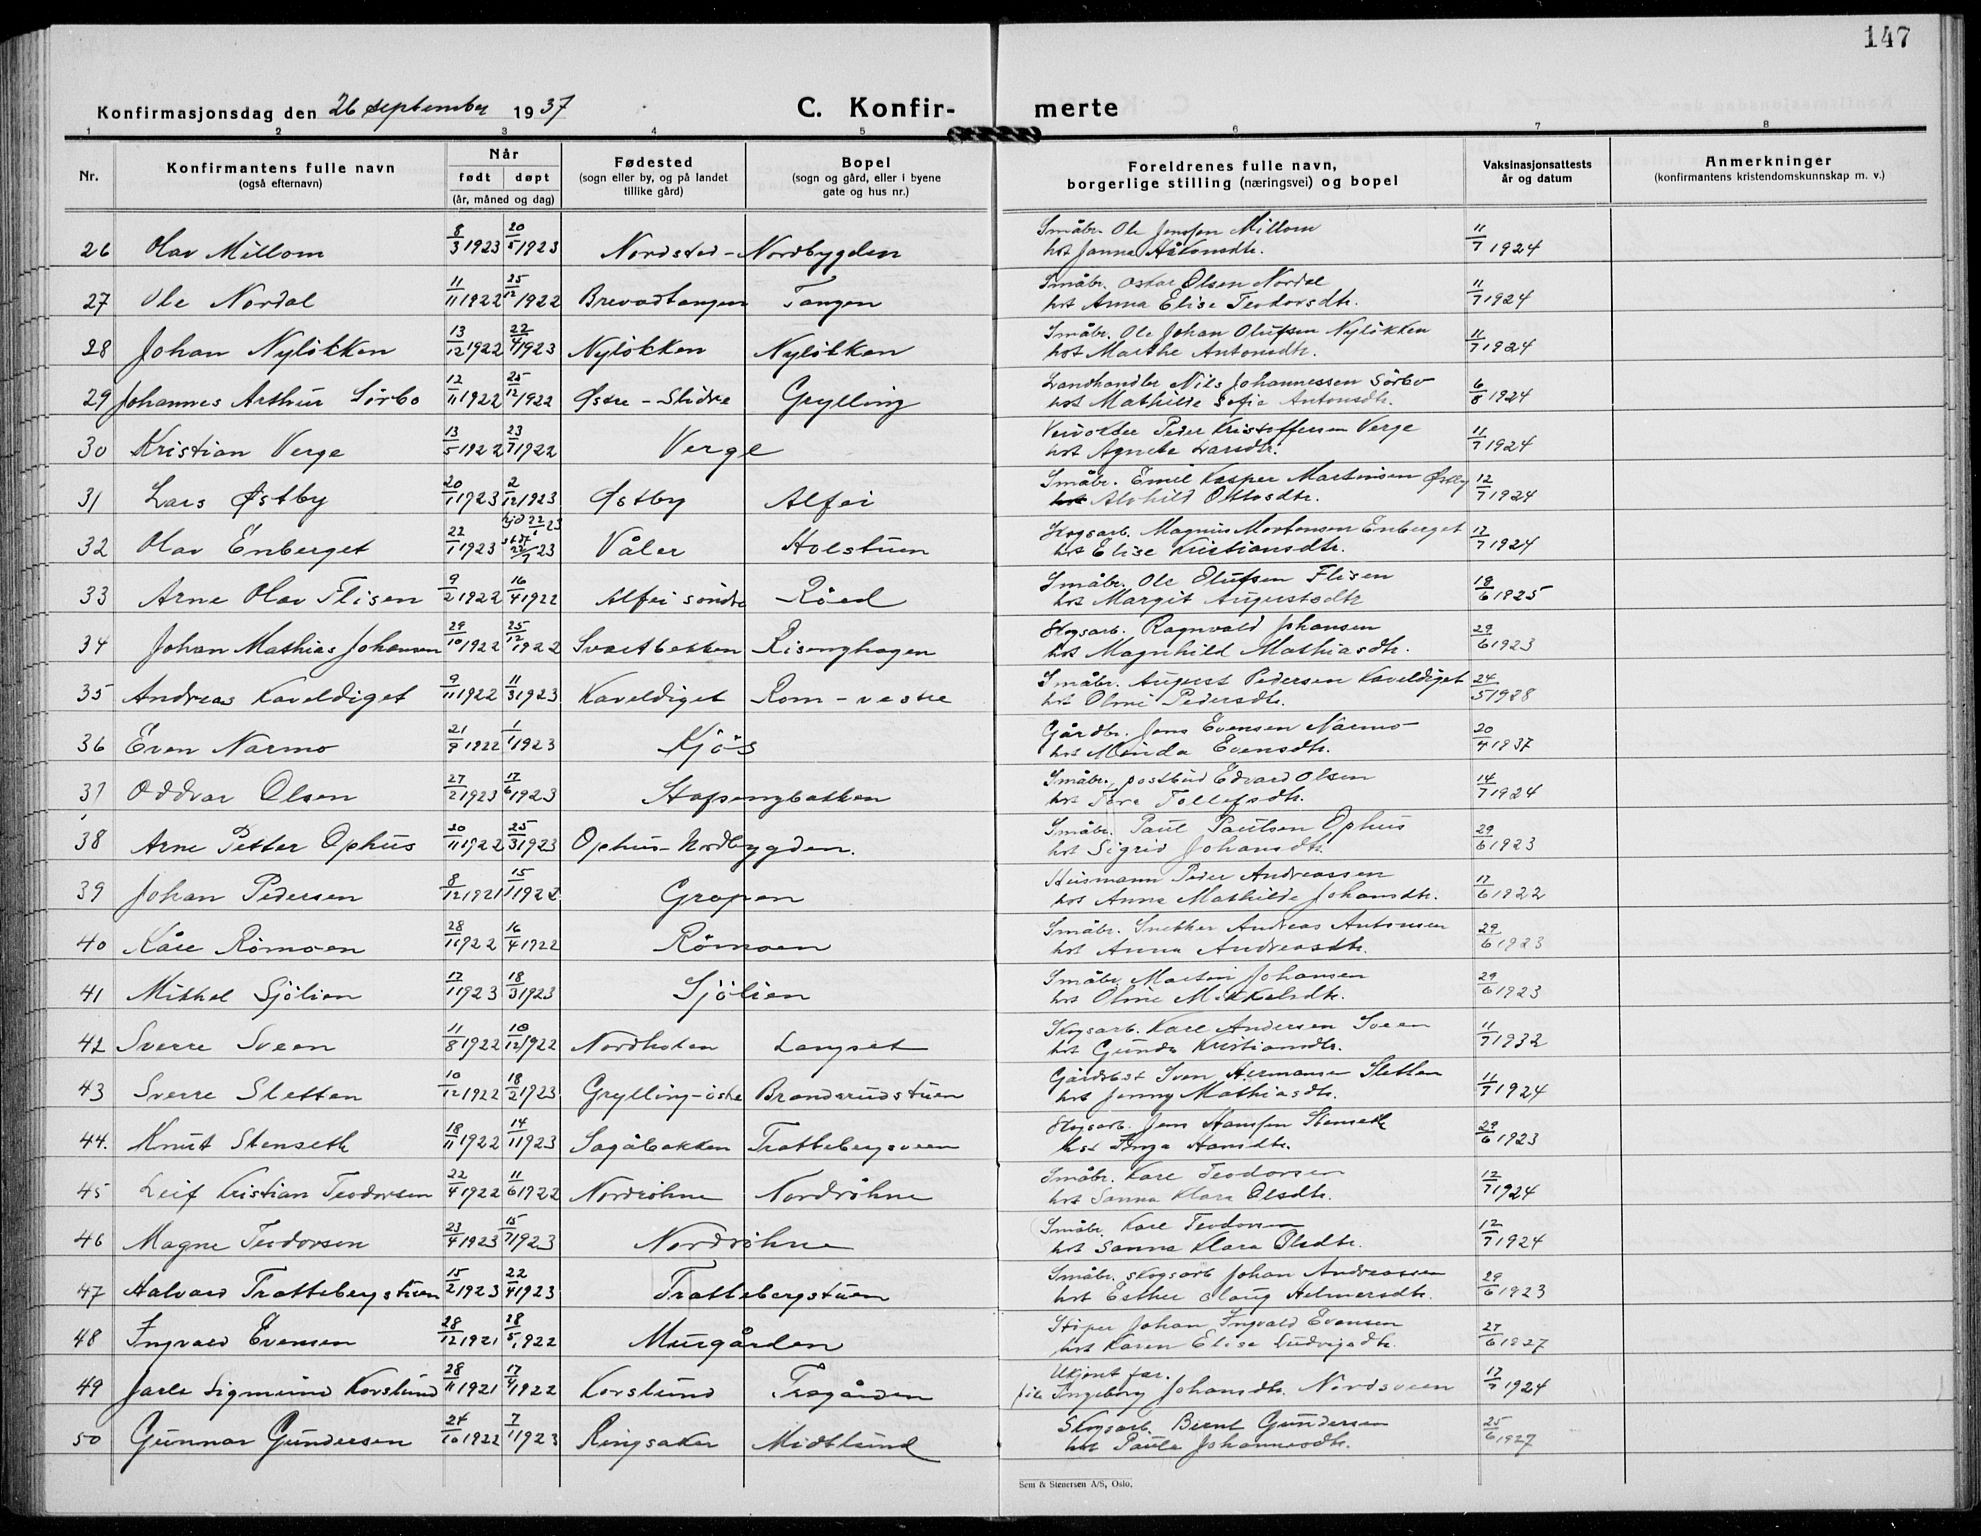 147
Konfirmasjonsdag den 26 september 1937
C. Konfir- merte
1 2 3 4 5 6 7 8
Nr. Konfirmantens fulle navn (også efternavn) Når født døpt (år, måned og dag) Fødested (sogn eller by, og på landet tillike gård) Bopel (sogn og gård, eller i byene gate og hus nr.) Foreldrenes fulle navn, borgerlige stilling (næringsvei) og bopel Vaksinasjonsattests år og datum Anmerkninger (konfirmantens kristendomskunnskap m. v.)
26 Olav Millom 8/3 1923 20/5 1923 Nordsted - Nordbygden Småbr. Ole Jensen Millom 11/7 1924
hst Janna Håkonsdtr.
27 Ole Nordal 11/11 1922 25/12 1922 Brevadtangen Tangen Småbr. Oskar Olsen Nordal 11/7 1924
hst Anna Elise Teodorsdtr.
28 Johan Nyløkken 13/12 1922 22/4 1923 Nyløkken Nyløkken Småbr. Ole Johan Olufsen Nyløkken 11/7 1924
hst Marthe Antonsdtr.
29 Johannes Arthur Sörbo 12/11 1922 25/12 1922 Østre - Slidre Grylling Landhandler Nils Johannessen Sörbo 6/8 1924
hst Mathilde Sofie Antonsdtr.
30 Kristian Verge 13/5 1922 23/7 1922 Verge Peder Kristoffersen Verge 11/7 1924
hst Agnete Larsdtr.
31 Lars Østby 20/1 1923 2/12 1923 Østby Alfei Småbr. Emil Kasper Martinsen Østby 12/7 1924
hst Alvhild Ottosdtr.
32 Olav Enberget 22/1 1923 hjd 22/1 23 st.kf. 22/7 23 Våler Holstuen Skogsarb. Magnus Mortensen Enberget 17/7 1924
hst Elise Kristiansdtr.
33 Arne Olav Flisen 9/2 1922 16/4 1922 Alfei söndre Röed Småbr. Ole Olufsen Flisen 18/6 1925
hst Margit Augustsdtr
34 Johan Mathias Johansen 29/10 1922 25/12 1922 Svartbekken Risenghagen Skogsarb. Ragnvald Johansen 29/6 1923
hst Magnhild Mathiasdtr.
35 Andreas Kaveldiget 9/11 1922 11/3 1923 Kaveldiget Rom - vestre Småbr. August Pedersen Kaveldiget 24/5 1928
hst Oline Pedersdtr.
36 Even Narmo 21/9 1922 1/1 1923 Kjös Gårdbr. Jens Evensen Narmo 20/4 1937
hst Minda Evensdtr.
37 Oddvar Olsen 27/2 1923 17/6 1923 Stafsengbakken Småbr., postbud Edvard Olsen 14/7 1924
hst Tora Tollefsdtr.
38 Arne Petter Ophus 20/11 1922 25/3 1923 Ophus - Nordbygden. Småbr. Paul Paulsen Ophus 29/6 1923
hst Sigrid Johansdtr.
39 Johan Pedersen 8/12 1921 15/1 1922 Gropen Husmann Peder Andreassen 17/6 1922
hst Anna Mathilde Johansdtr.
40 Kåre Römoen 28/1 1922 16/4 1922 Römoen Småbr. Snekker Andreas Antonsen 29/6 1923
hst Anna Andreasdtr.
41 Mikkel Sjölien 17/1 1923 18/3 1923 Sjölien Småbr. Martin Johansen 29/6 1923
hst Oline Mikkelsdtr.
42 Sverre Sveen 11/8 1922 10/12 1922 Nordholen Langset Skogsarb. Karl Andersen Sveen 11/7 1932
hst Gunda Kristiansdtr.
43 Sverre Sletten 10/12 1922 18/2 1923 Grylling - östre Brandsrudstuen Gårdsbst Sven Hermansen Sletten 11/7 1924
hst Jenny Mathiasdtr.
44. Knut Stenseth 18/11 1922 14/1 1923 Sagåbakken Trattebergsveen Skogsarb. Jens Hansen Stenseth 29/6 1923
hst Inga Hansdtr.
45 Leif Kristian Teodorsen 22/4 1922 11/6 1922 Nordröhne Nordröhne Småbr. Karl Teodorsen 12/7 1924
hst Sanna Klara Olsdtr.
46 Magne Teodorsen 23/4 1923 15/7 1923 Nordröhne Småbr. Karl Teodorsen 12/7 1924
hst Sanna Klara Olsdtr.
47 Halvard Trattebergstuen 15/2 1923 22/4 1923 Trattebergstuen Småbr. skogsarb Johan Andreassen 29/6 1923
hst Esther Olaug Helmersdtr.
48 Ingvald Evensen 28/12 1921 28/5 1922 Murgården Støper Johan Ingvald Evensen 27/6 1927
hst Karen Elise Ludvigsdtr.
49 Jarle Sigmund Korslund 28/11 1921 17/4 1922 Korslund Trogården Ukjent far. 17/7 1924
pike Ingeborg Johansdtr. Nordsveen
50 Gunnar Gundersen 24/10 1922 7/1 1923 Ringsaker Midtlund Skogsarb. Bernt Gundersen 25/6 1927
hst Paula Johannesdtr.
Sem & Stenersen A/S, Oslo.